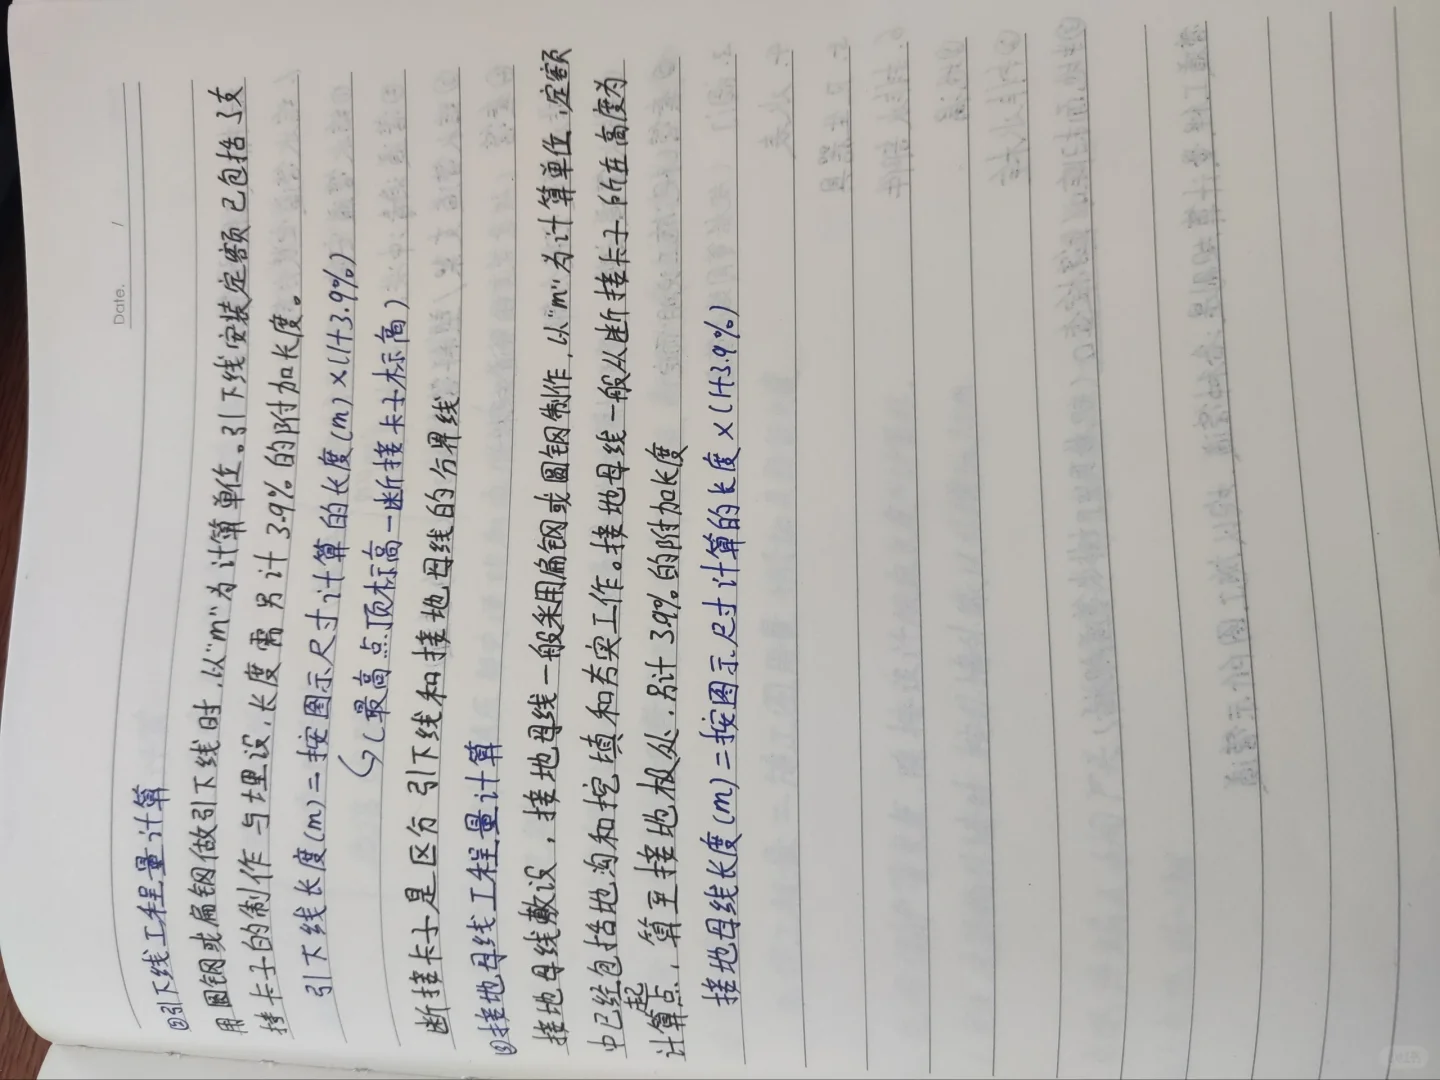 Date. /
②引下线工程量计算
用圆钢或扁钢做引下线时,以"m"为计算单位。引下线安装定额已包括了支
持卡子的制作与埋设,长度需另计3.9%的附加长度。
引下线长度(m)=按图示尺寸计算的长度(m)×(1+3.9%)
(最高点顶标高-断接卡子标高)
断接卡子是区分引下线和接地母线的分界线
③接地母线工程量计算
接地母线敷设,接地母线一般采用扁钢或圆钢制作,以"m"为计算单位,定额
中已经包括地沟和挖填和夯实工作。接地母线一般从断接卡子所在高度为
计算起点,算至接地极处.另计3.9%的附加长度
接地母线长度(m)=按图示尺寸计算的长度×(1+3.9%)